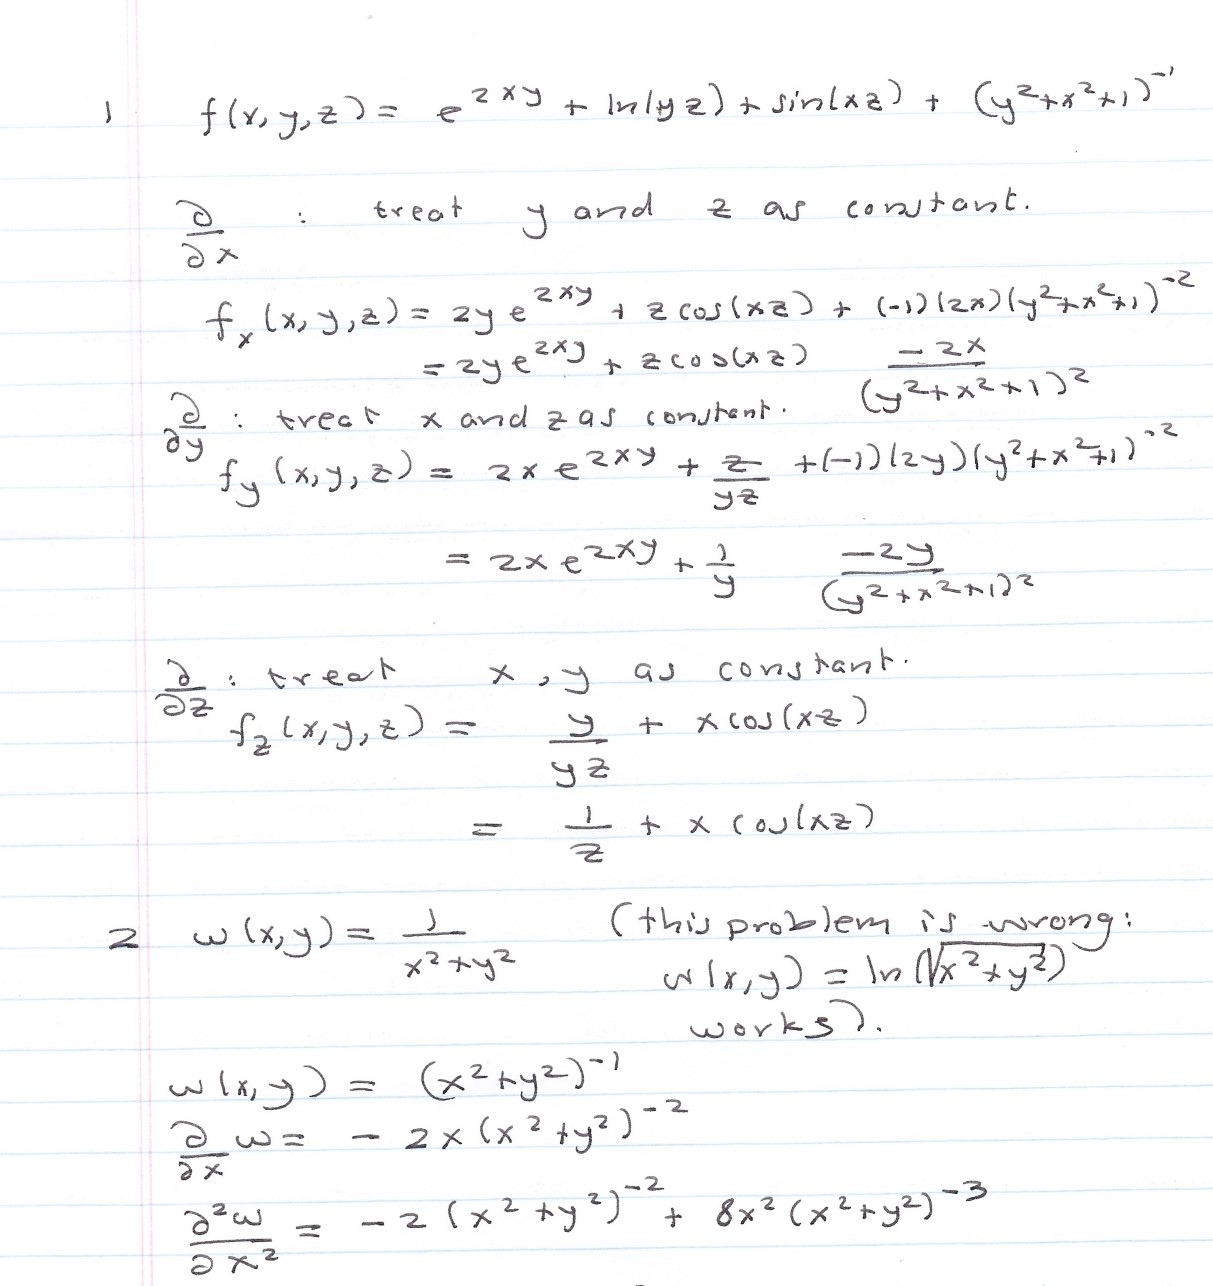 1 f(x,y,z) = e^{2xy} + ln(yz) + sin(xz) + (y²+x²+1)^{-1}
∂/∂x : treat y and z as constant.
f_x(x,y,z) = 2y e^{2xy} + z cos(xz) + (-1)(2x)(y²+x²+1)^{-2}
= 2y e^{2xy} + z cos(xz) -2x/(y²+x²+1)²
∂/∂y : treat x and z as constant.
f_y(x,y,z) = 2x e^{2xy} + z/yz + (-1)(2y)(y²+x²+1)^{-2}
= 2x e^{2xy} + 1/y -2y/(y²+x²+1)²
∂/∂z : treat x, y as constant.
f_z(x,y,z) = y/yz + x cos(xz)
= 1/z + x cos(xz)
2 w(x,y) = 1/(x²+y²) (this problem is wrong:
w(x,y) = ln(√(x²+y²))
works).
w(x,y) = (x²+y²)^{-1}
∂/∂x w = - 2x(x²+y²)^{-2}
∂²w/∂x² = -2(x²+y²)^{-2} + 8x²(x²+y²)^{-3}